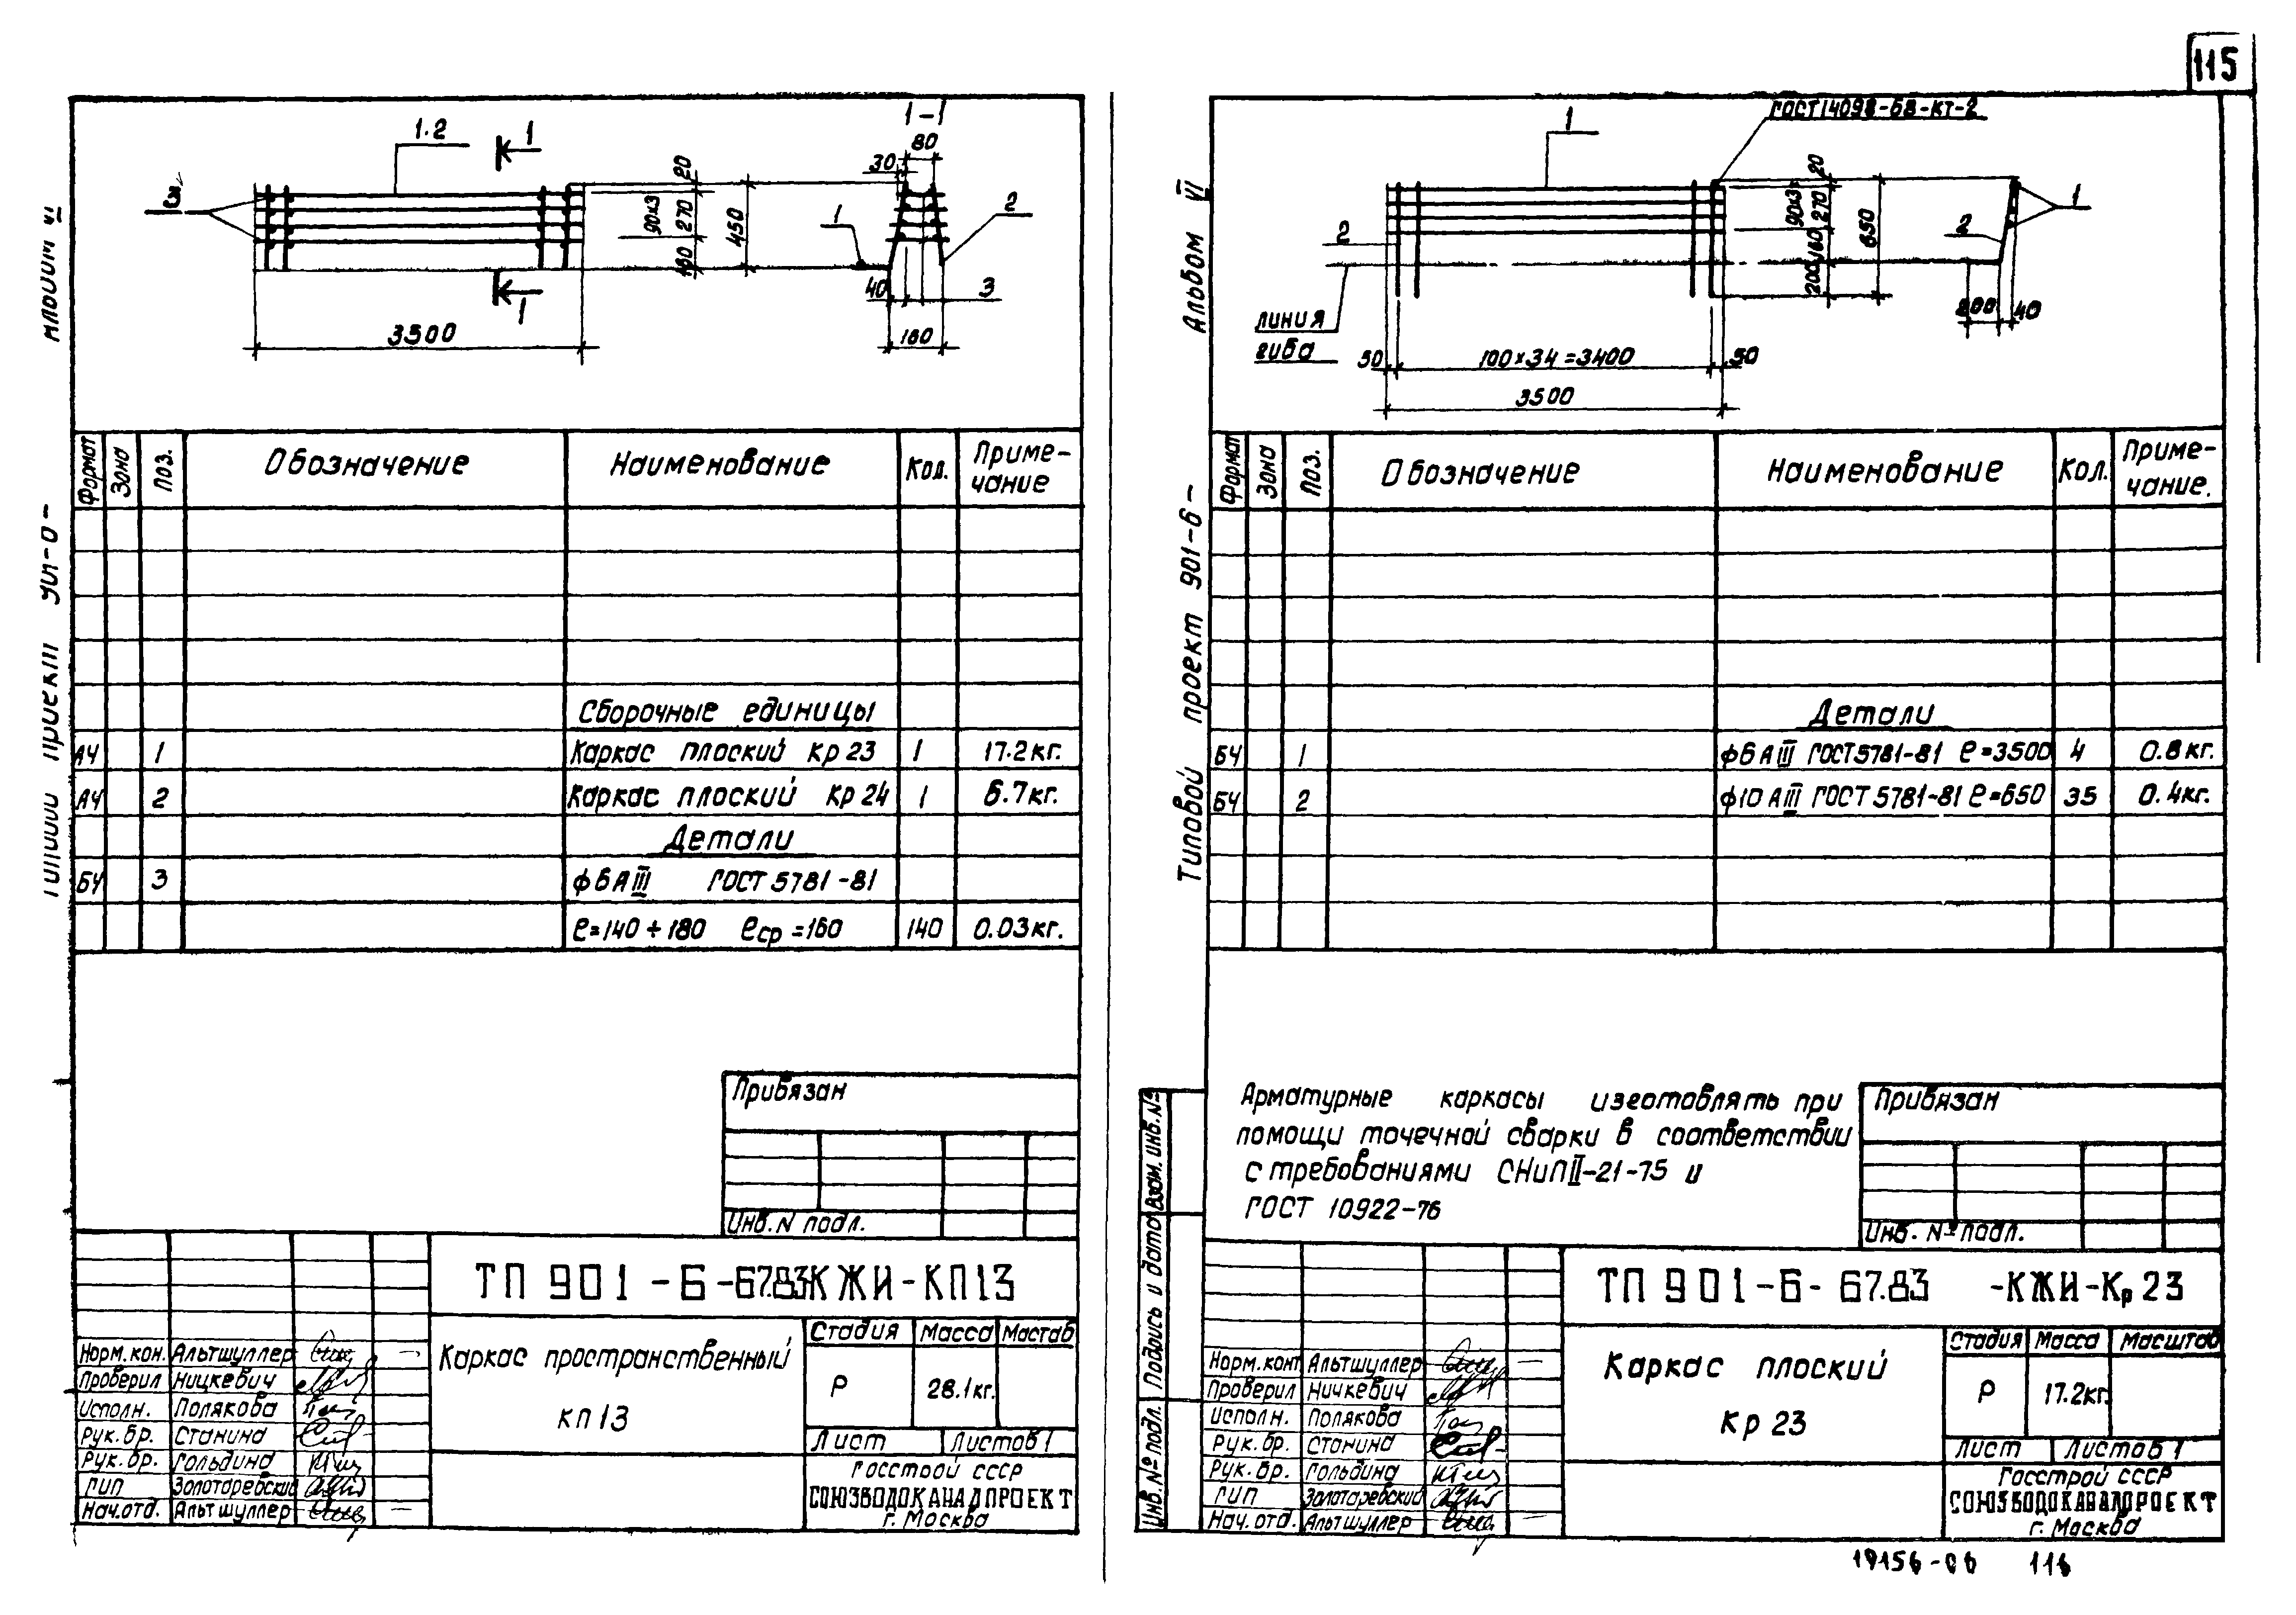 115
1.2
1
1
3
3500
20
90x3
270
160
450
1-1
80
30
1
2
40
3
160
Формат
Зона
Поз.
Обозначение
Наименование
Кол.
Приме-
чание
Сборочные единицы
А4 1 Каркас плоский Кр 23 1 17.2кг.
А4 2 Каркас плоский Кр 24 1 6.7кг.
Детали
БЧ 3 ф6АIII ГОСТ 5781-81
ℓ=140÷180 ℓср=160 140 0.03кг.
Привязан
Инв. N подл.
ТП 901-6-67.83КЖИ-КП13
Каркас пространственный
КП13
Стадия Масса Мастаб
Р 28.1кг.
Лист Листов 1
Госстрой СССР
СОЮЗВОДОКАНАЛПРОЕКТ
г. Москва
Норм.кон. Альтшуллер
Проверил Ницкевич
Исполн. Полякова
Рук.бр. Станина
Рук.бр. Гольдина
ГИП Золотаревский
Нач.отд. Альтшуллер
Альбом VI
Типовой проект 901-6-
ГОСТ14098-68-КТ-2
1
2
линия
гиба
50
100x34=3400
50
3500
20
90x3
270
160
200
650
1
2
200
40
Формат
Зона
Поз.
Обозначение
Наименование
Кол.
Приме-
чание.
Детали
БЧ 1 ф6АIII ГОСТ5781-81 ℓ=3500 4 0.8кг.
БЧ 2 ф10АIII ГОСТ5781-81 ℓ=650 35 0.4кг.
Арматурные каркасы изготовлять при
помощи точечной сварки в соответствии
с требованиями СНиПII-21-75 и
ГОСТ 10922-76
Привязан
Инв. № подл.
Взам. инв. №
Подпись и дата
Инв. № подл.
ТП 901-6-67.83 -КЖИ-Кр23
Каркас плоский
Кр 23
Стадия Масса Масштаб
Р 17.2кг.
Лист Листов 1
Госстрой СССР
СОЮЗВОДОКАНАЛПРОЕКТ
г. Москва
Норм.конт Альтшуллер
Проверил Ницкевич
Исполн. Полякова
Рук.бр. Станина
Рук.бр. Гольдина
ГИП Золотаревский
Нач.отд. Альтшуллер
19156-06 116